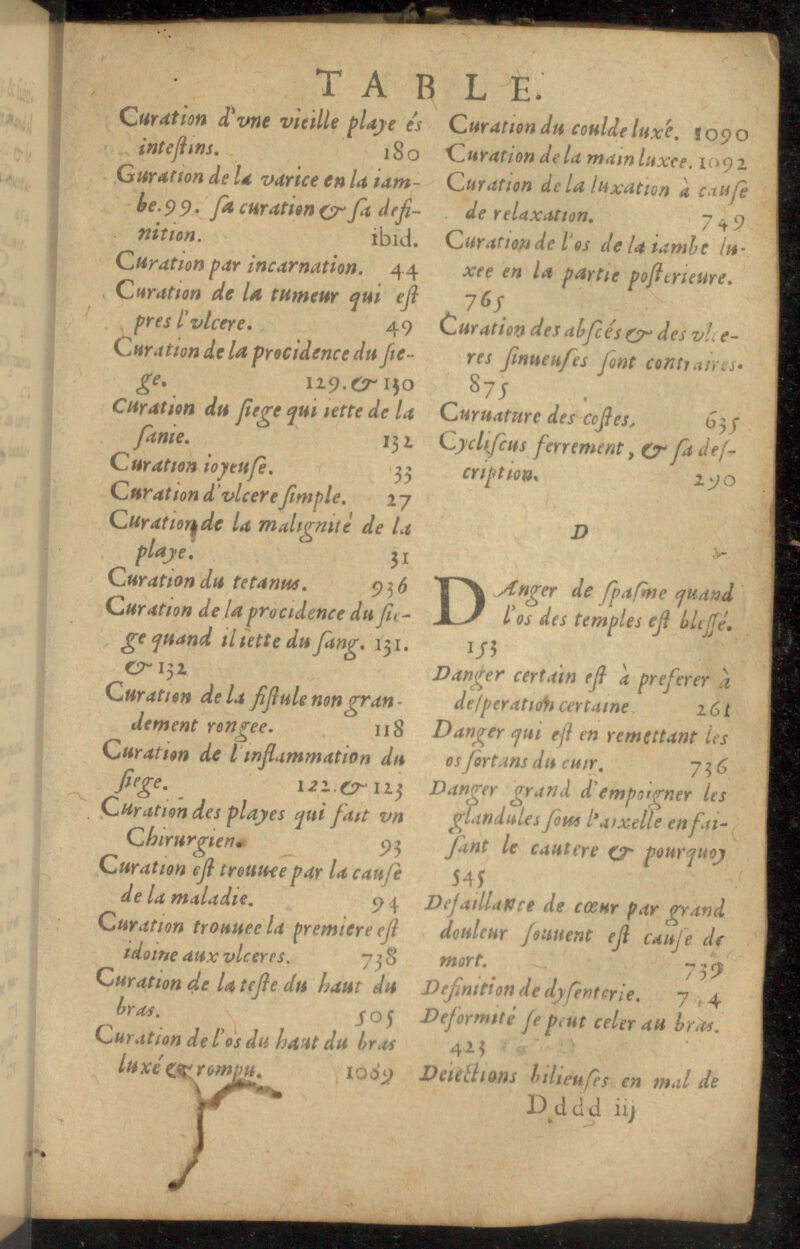 TABLE.
Curation d'vne vieille playe és
intestins. 180
Guration de la varice en la iam-
be.99. sa curation & sa defi-
nition. ibid.
Curation par incarnation. 44
Curation de la tumeur qui est
pres l'vlcere. 49
Curation de la procidence du sie-
ge. 129.& 130
Curation du siege qui iette de la
sanie. 132
Curation ioyeuse. 33
Curation d'vlcere simple. 27
Curation de la malignité de la
playe. 31
Curation du tetanus. 936
Curation de la procidence du sie-
ge quand il iette du sang. 131.
& 132
Curation de la fistule non gran-
dement rongee. 118
Curation de l'inflammation du
siege. 122.& 123
Curation des playes qui fait vn
Chirurgien. 93
Curation est trouuee par la cause
de la maladie. 94
Curation trouuee la premiere est
idoine aux vlceres. 738
Curation de la teste du haut du
bras. 505
Curation de l'os du haut du bras
luxé & rompu. 1089
Curation du coulde luxé. 1090
Curation de la main luxee. 1092
Curation de la luxation à cause
de relaxation. 749
Curation de l'os de la iambe lu-
xee en la partie posterieure.
765
Curation des abscés & des vlce-
res sinueuses sont contraires.
875
Curuature des costes. 635
Cycliscus ferrement, & sa des-
cription. 290
D
DAnger de spasme quand
l'os des temples est blessé.
153
Danger certain est à preferer à
desperation certaine 261
Danger qui est en remettant les
os sortans du cuir. 736
Danger grand d'empoigner les
glandules sous l'aixelle en fai-
sant le cautere & pourquoy
545
Defaillance de cœur par grand
douleur souuent est cause de
mort. 739
Definition de dysenterie.
Deformité se peut celer au bras.
423
Deiections bilieuses en mal de
Dddd iij